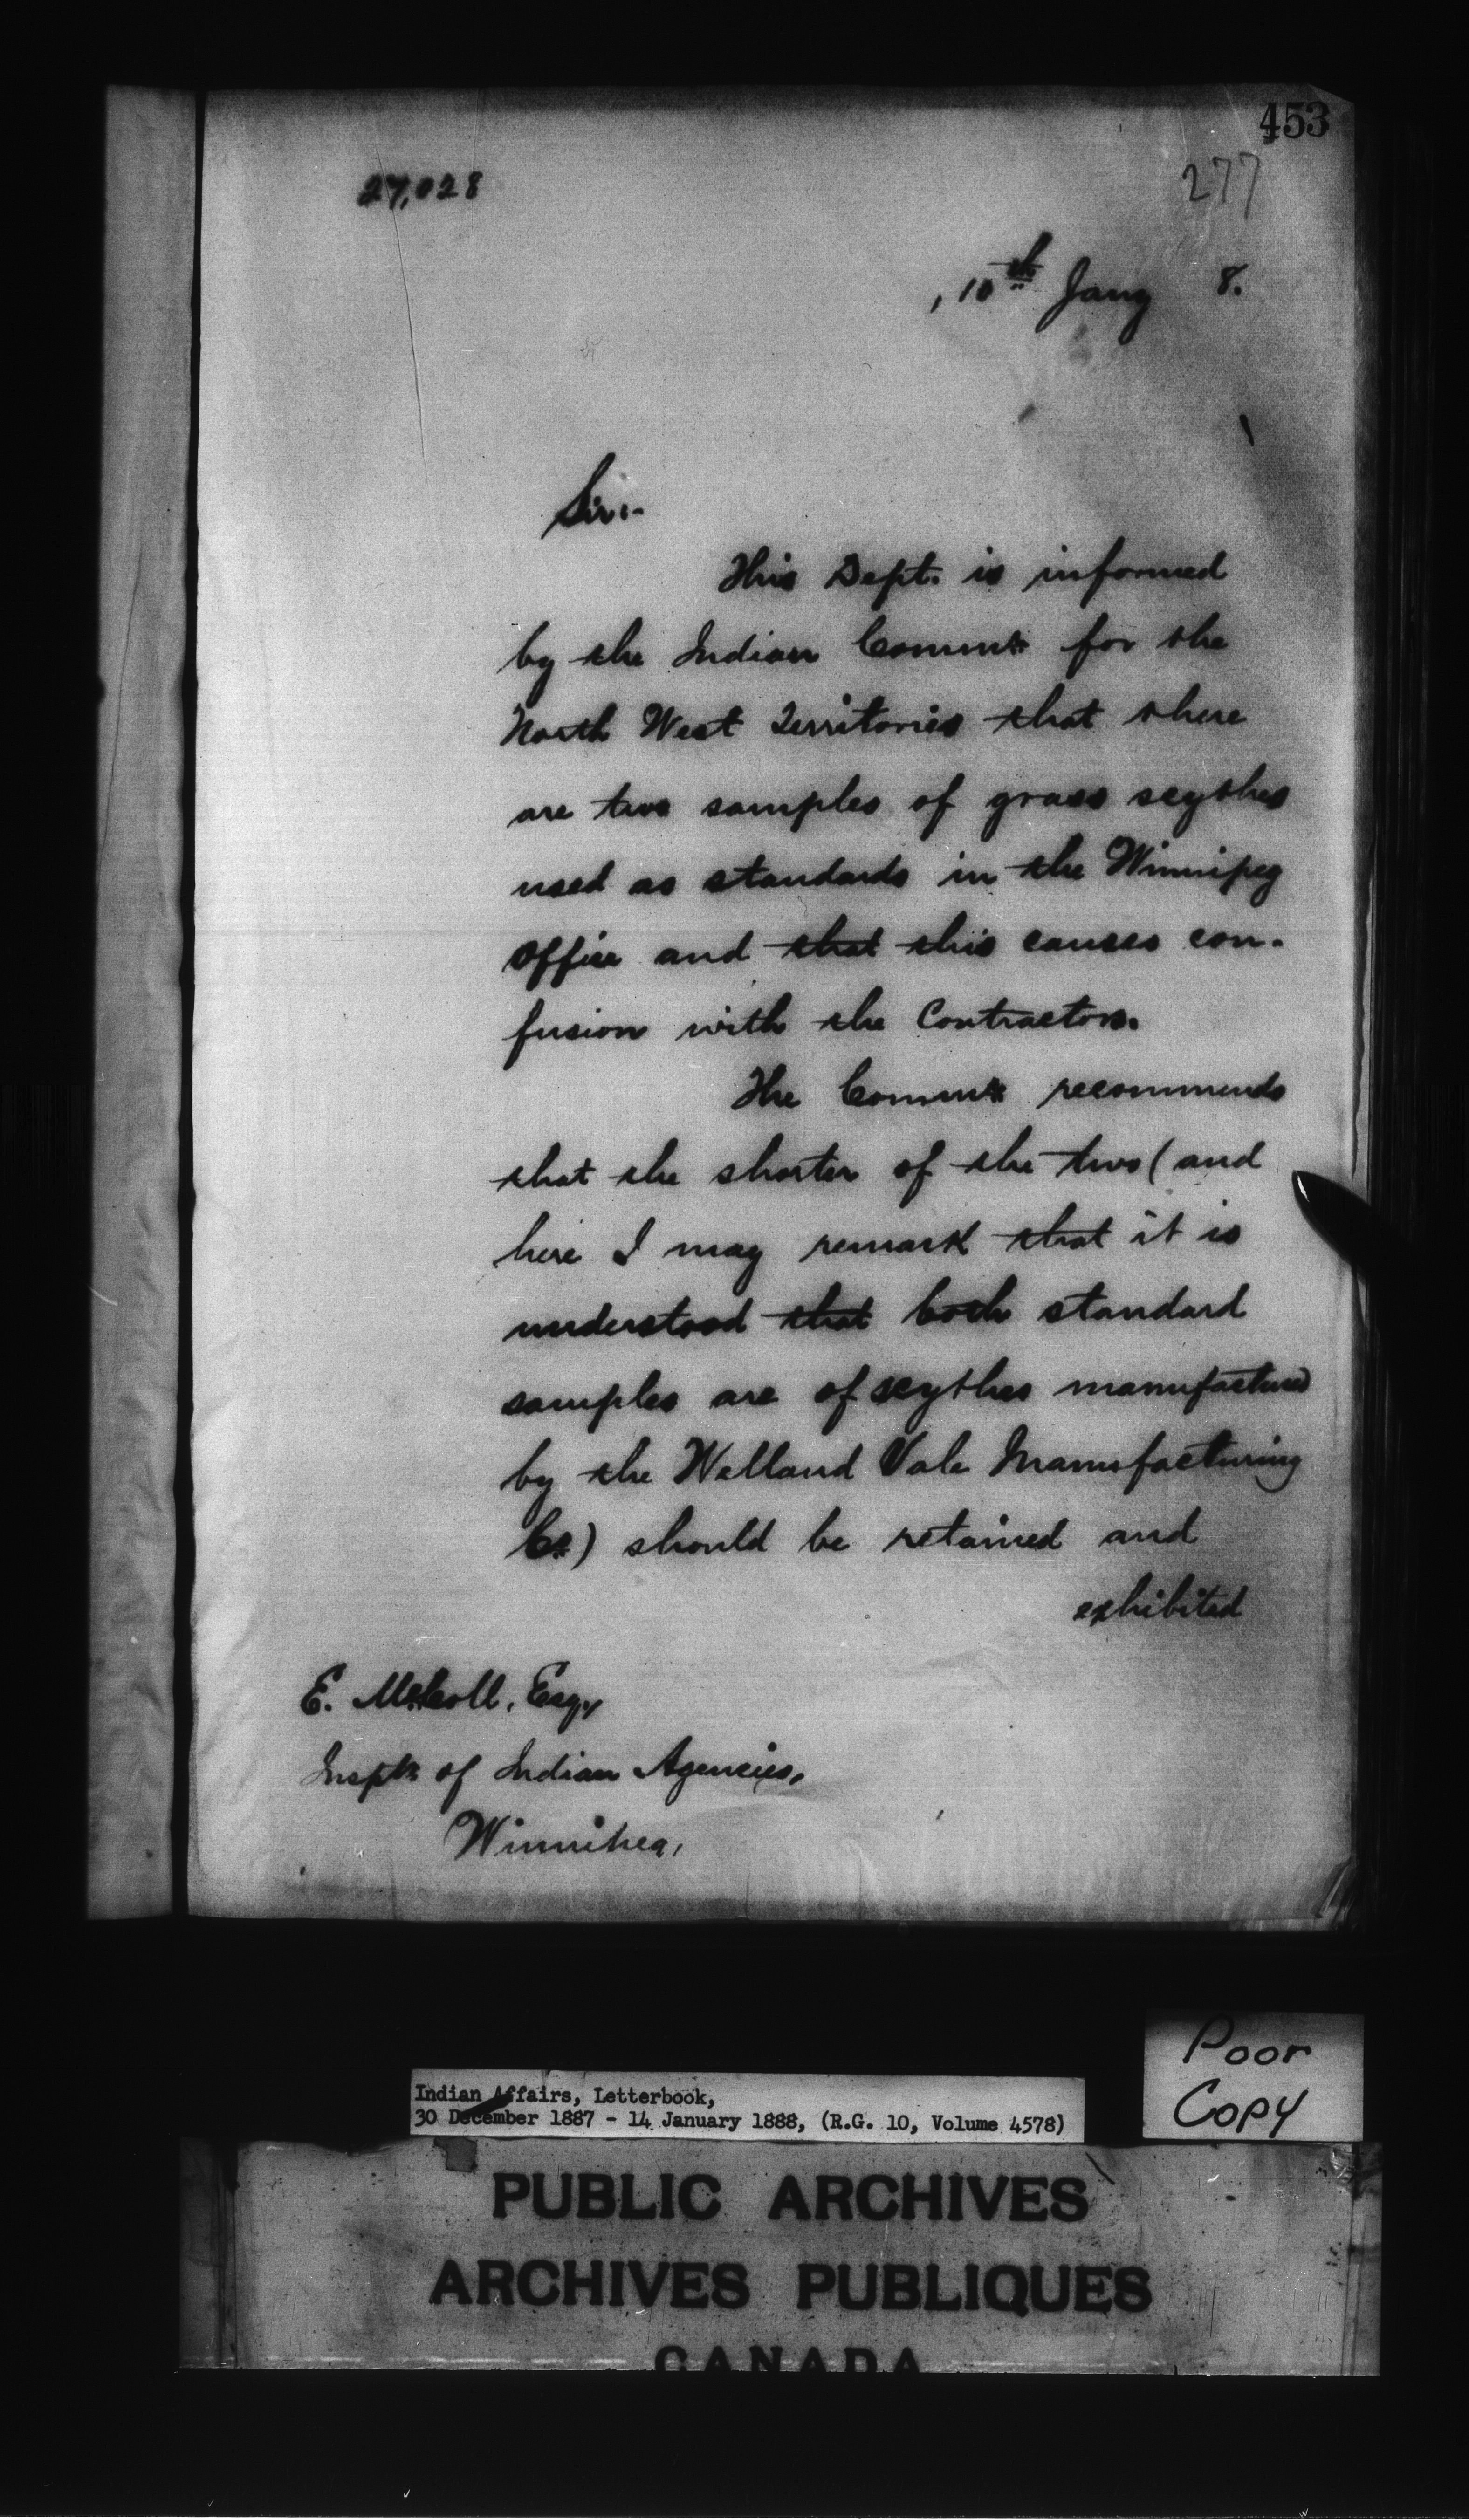 453
277
27,028
10th Jany 8.
Sir:-
This Dept. is informed
by the Indian Commr for the
North West Territories that there
are two samples of grass scythes
used as standards in the Winnipeg
Office and that this causes con-
fusion with the Contractors.
The Commr recommends
that the shorter of the two (and
here I may remark that it is
understood that both standard
samples are of scythes manufactured
by the Welland Vale Manufacturing
Co) should be retained and
exhibited
E. McColl, Esq.,
Inspr of Indian Agencies,
Winnipeg,
Poor
Copy
Indian Affairs, Letterbook,
30 December 1887 - 14 January 1888, (R.G. 10, Volume 4578)
PUBLIC ARCHIVES
ARCHIVES PUBLIQUES
CANADA